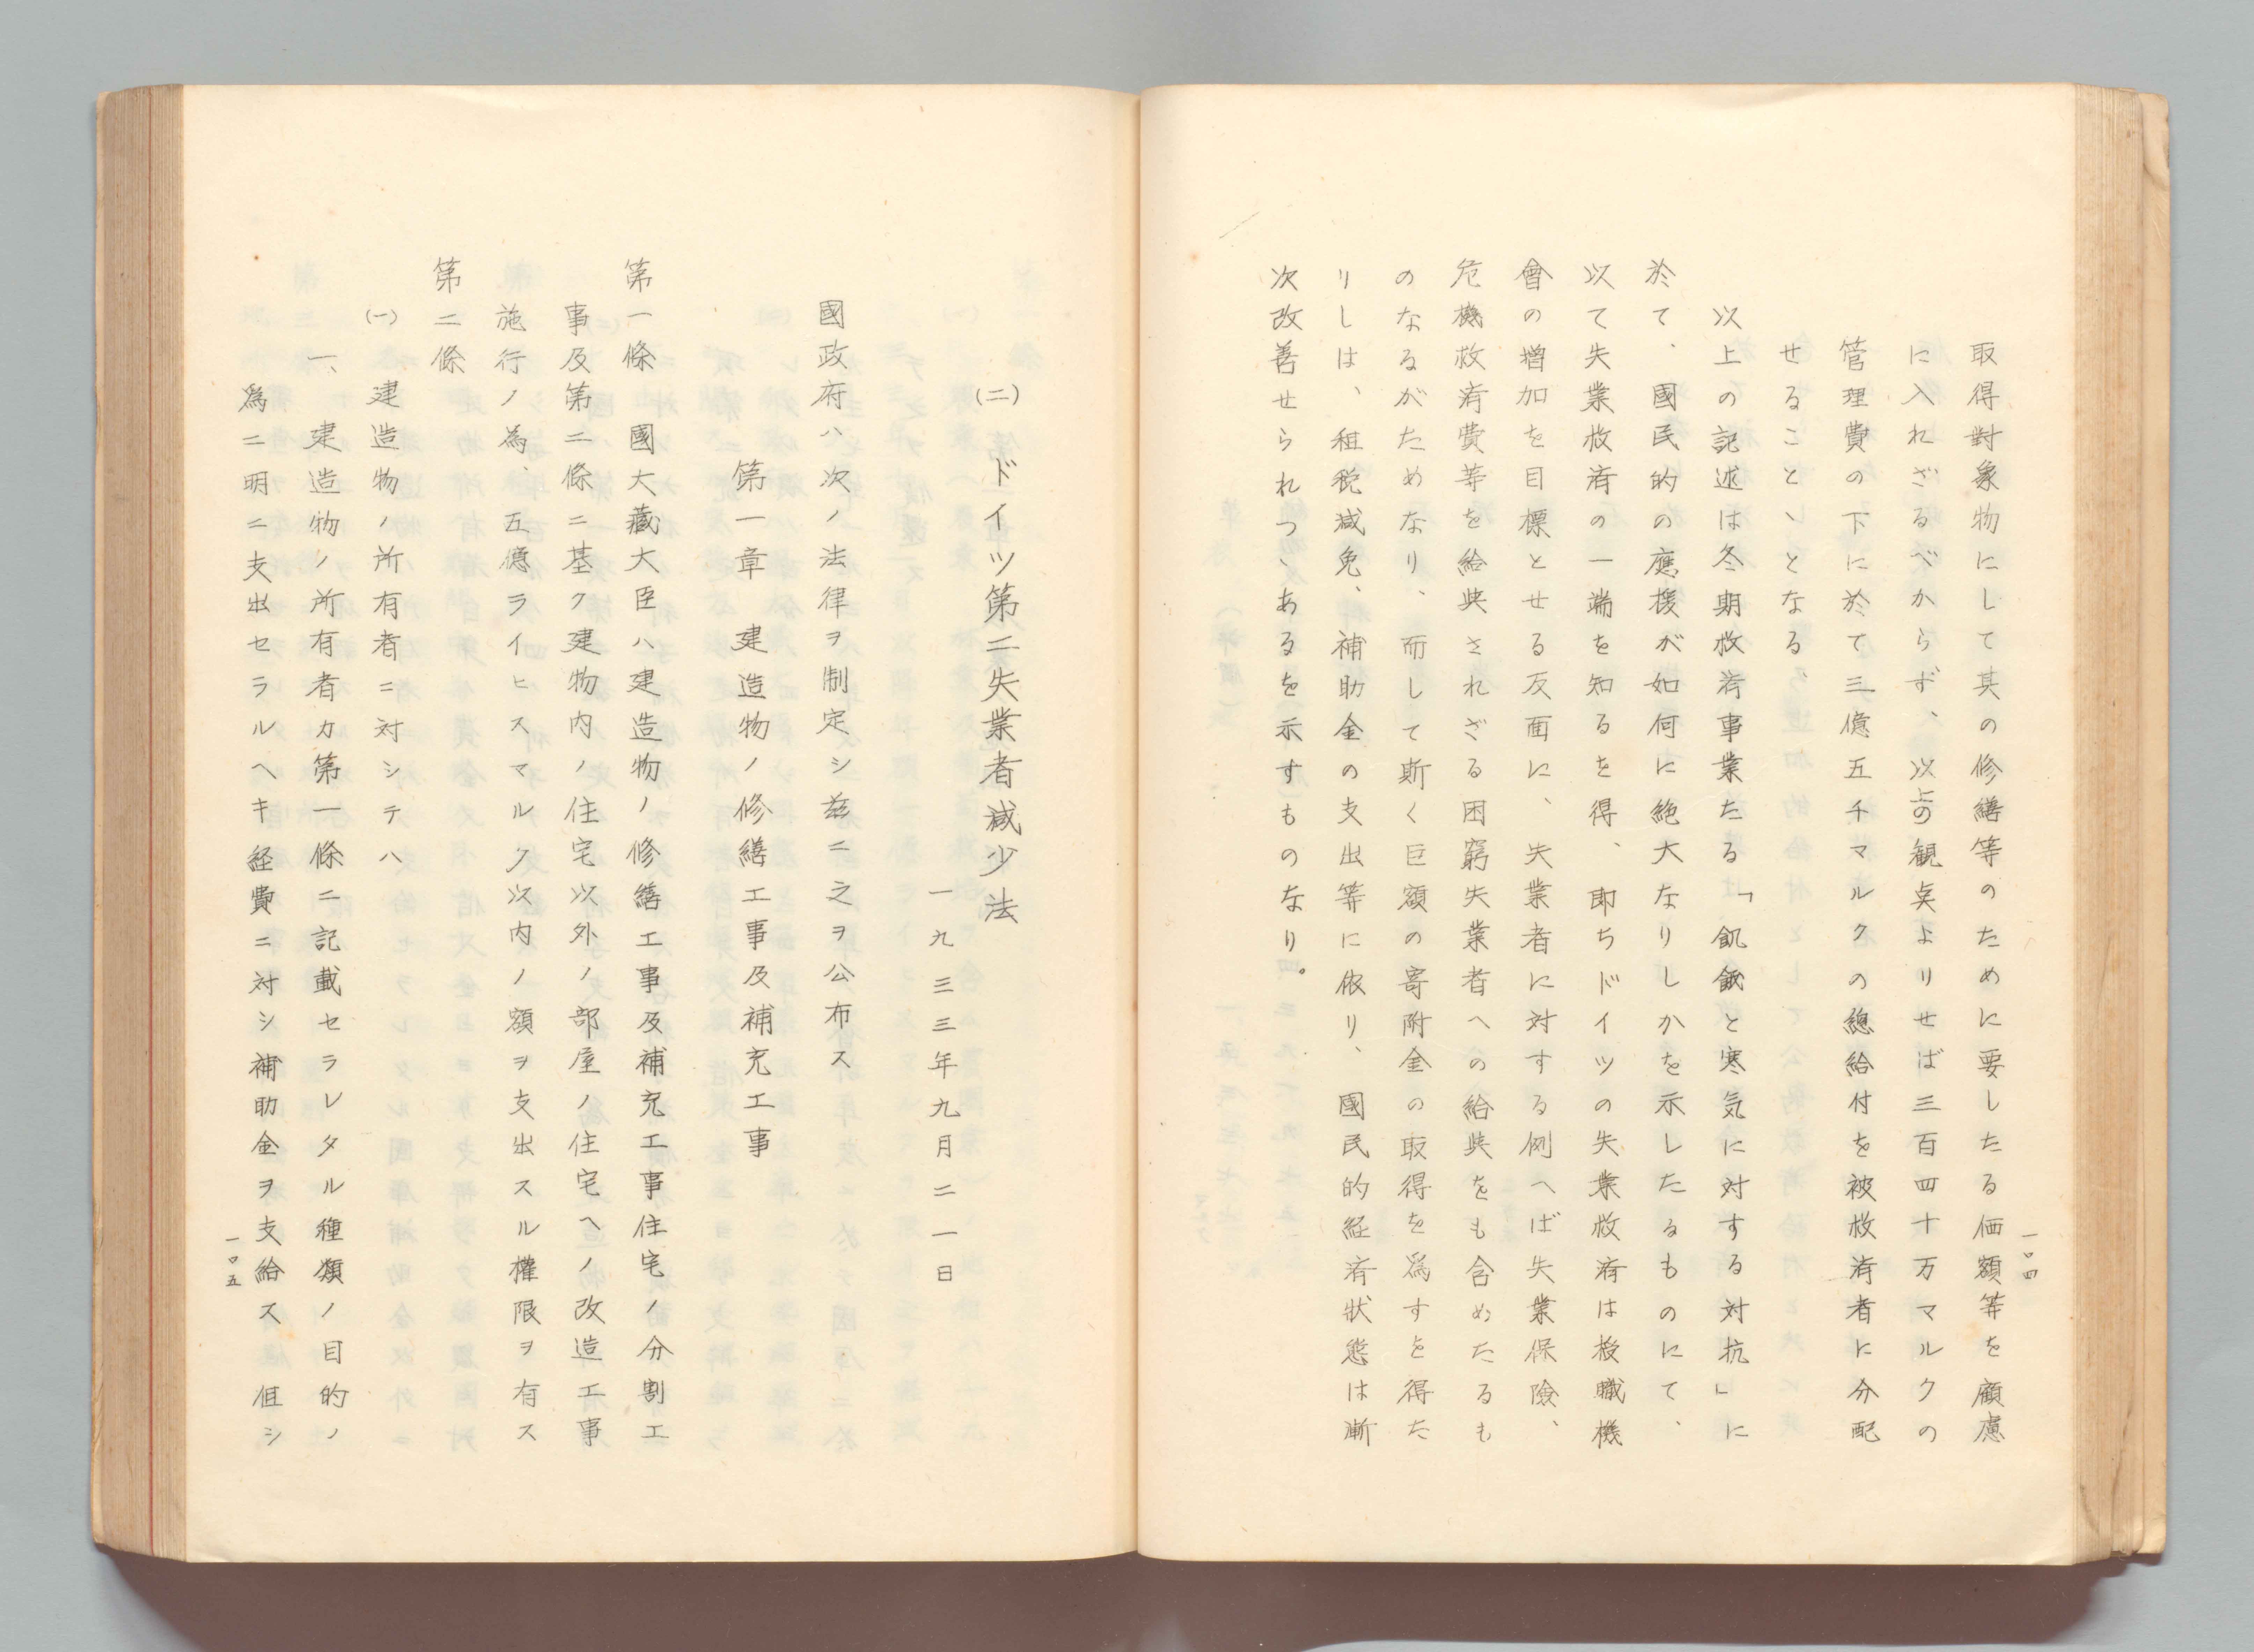 取得對象物にして其の修繕等のために要したる価額等を顧慮
に入れざるべからず、以上の観点よりせば三百四十万マルクの
管理費の下に於て三億五千マルクの總給付を被救済者に分配
せることゝとなる
以上の記述は冬期救済事業たる「飢餓と寒気に対する対抗」に
於て、國民的の應援が如何に絶大なりしかを示したるものにて、
以て失業救済の一端を知るを得、即ちドイツの失業救済は授職機
會の増加を目標とせる反面に、失業者に対する例へば失業保險、
危機救済費等を給与されざる困窮失業者への給与をも含めたるも
のなるがためなり、而して斯く巨額の寄附金の取得を爲すを得た
りしは、租税減免、補助金の支出等に依り、國民的経済狀態は漸
次改善せられつゝあるを示すものなり。
一〇四
(二)ドイツ第二失業者減少法
一九三三年九月二一日
國政府ハ次ノ法律ヲ制定シ茲ニ之ヲ公布ス
第一章 建造物ノ修繕工事及補充工事
第一條 國大藏大臣ハ建造物ノ修繕工事及補充工事住宅ノ分割工
事及第二條ニ基ク建物内ノ住宅以外ノ部屋ノ住宅ヘノ改造工事
施行ノ為、五億ライヒスマルク以内ノ額ヲ支出スル權限ヲ有ス
第二條
(一)建造物ノ所有者ニ対シテハ
一、建造物ノ所有者カ第一條ニ記載セラレタル種類ノ目的ノ
爲ニ明ニ支出セラルヘキ経費ニ対シ補助金ヲ支給ス但シ
一〇五